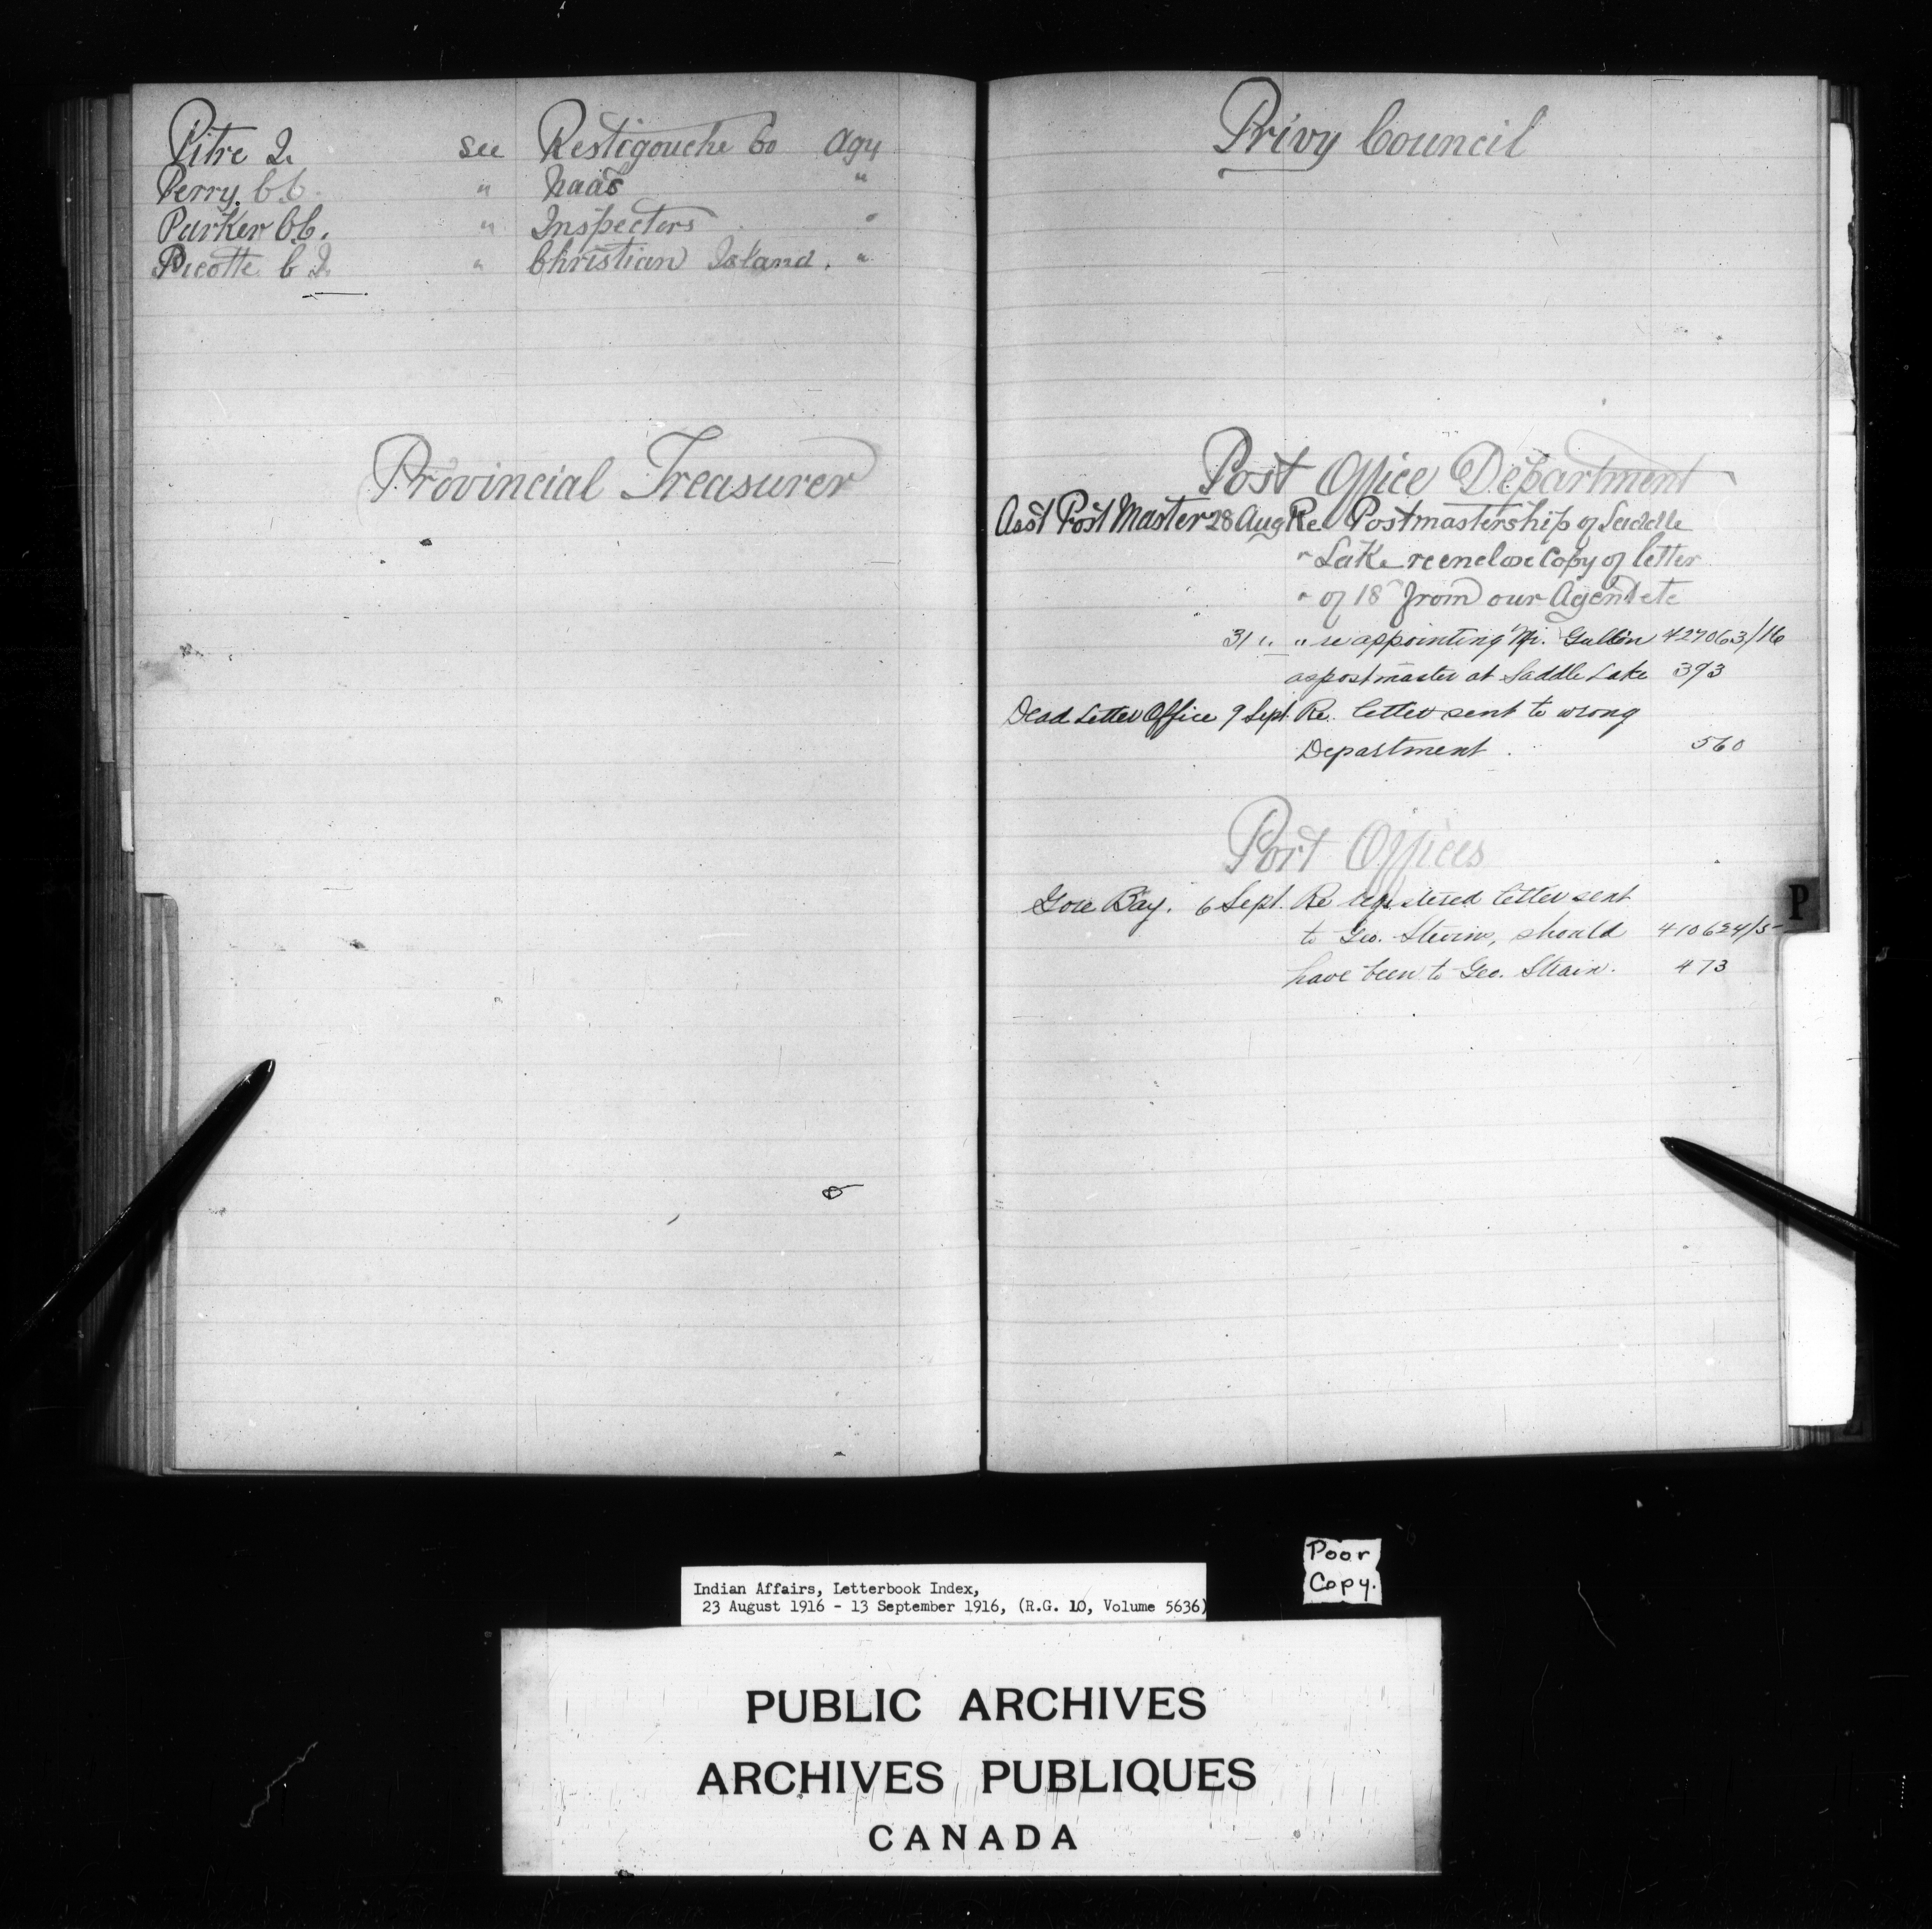 Pitre J. see Restigouche Co Agy
Perry. C.C. " Naas "
Parker C.C. " Inspectors "
Picotte C J. " Christian Island. "
Provincial Treasurer
Privy Council
Post Office Department
Asst Post Master 28 Aug Re Postmastership of Saddle
" Lake re enclose Copy of letter
" of 18th from our Agent etc
31 " " re appointing Mr. Gullion 427063/16
as postmaster at Saddle Lake 393
Dead Letter Office 9 Sept. Re. letter sent to wrong
Department. 560
Port Offices
Gore Bay. 6 Sept. Re registered letter sent
to Geo. Stevens, should 410624/5-
have been to Geo. Strain. 473
P
Poor
Copy.
Indian Affairs, Letterbook Index,
23 August 1916 - 13 September 1916, (R.G. 10, Volume 5636)
PUBLIC ARCHIVES
ARCHIVES PUBLIQUES
CANADA